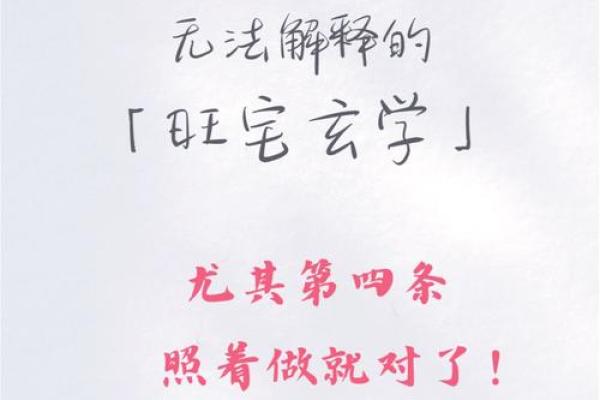 无法解释的
「旺宅玄学」
尤其第四条
照着做就对了!